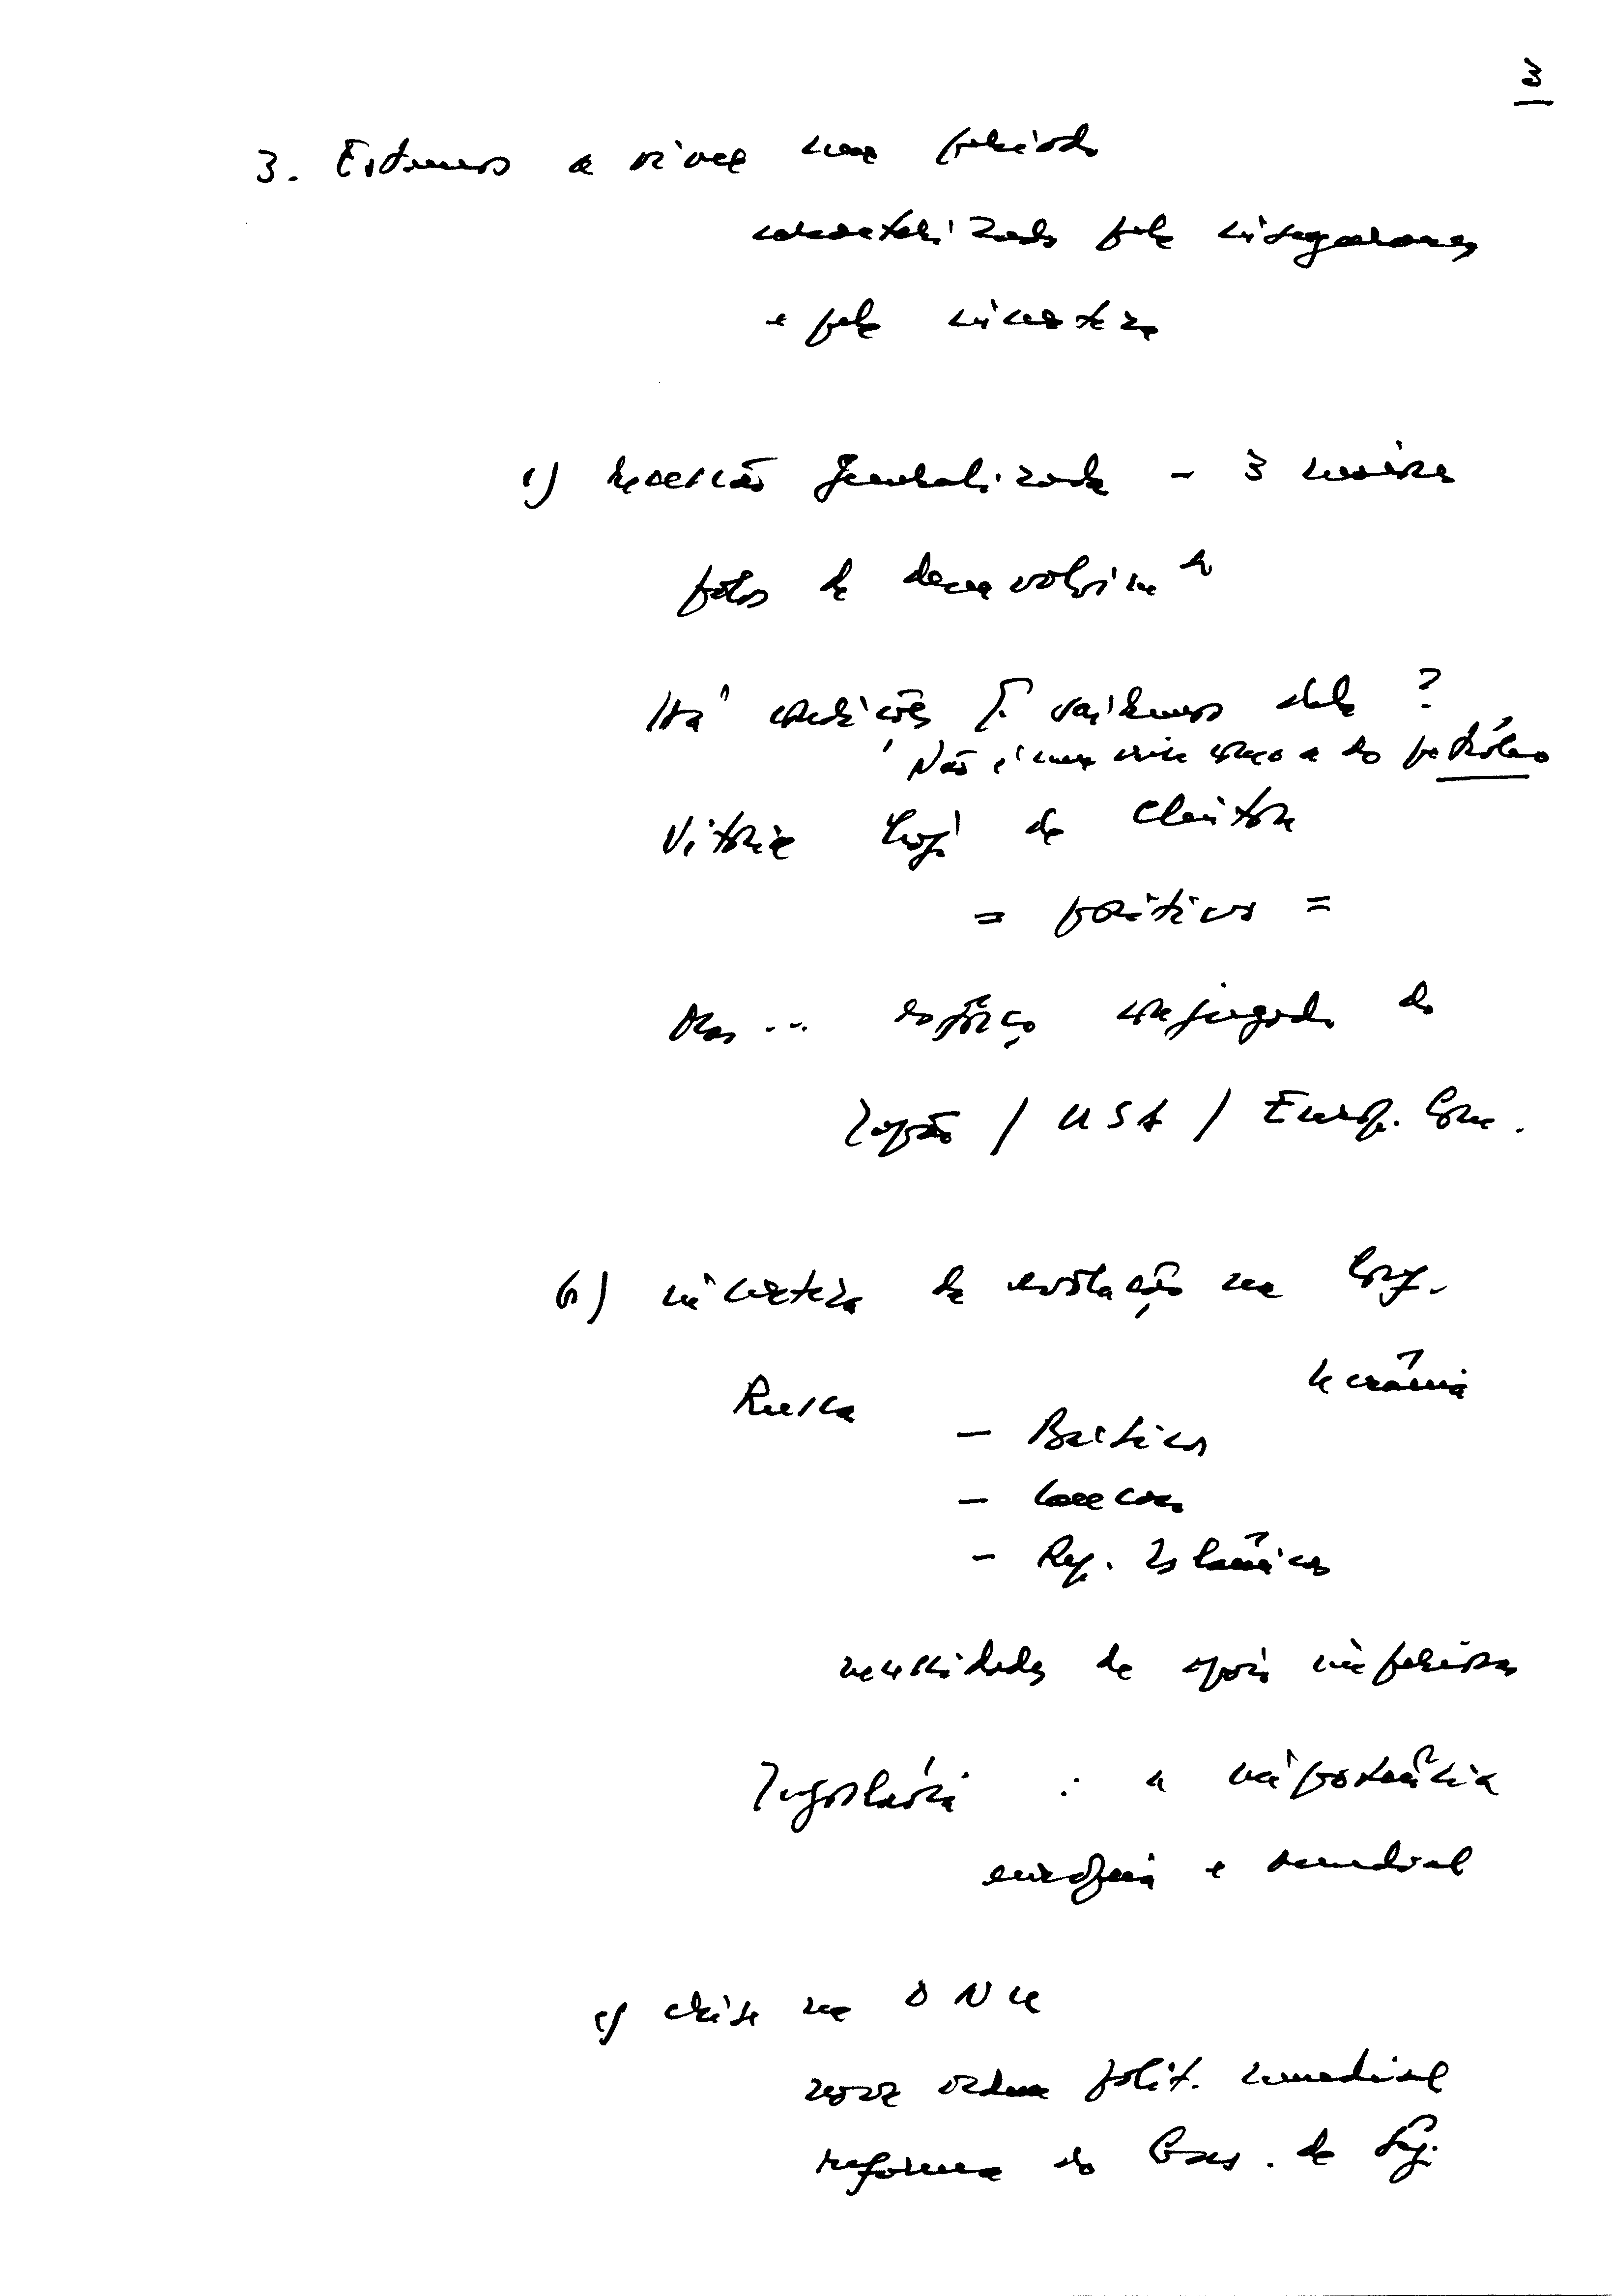 3
3. Estamos a viver um período
caracterizado pela insegurança
e pela incerteza
a) recessão generalizada - 3 maiores
polos de desenvolvimto
Há condições p. sairmos dela ?
Não é uma crise como a do petróleo
Vitória de Clinton
= positiva =
Mas ... esforço conjugado do
Japão / USA / Europ. Com.
b) incerteza da evolução na
Russia
Ucrânia
- Balticos
- Caucaso
- Rep. Islâmicas
necessidade de apoio
Jugoslávia : a impotência
europeia e mundial
c) crise na ONU
nova ordem polit. mundial
reforma do Cons. de Seg.